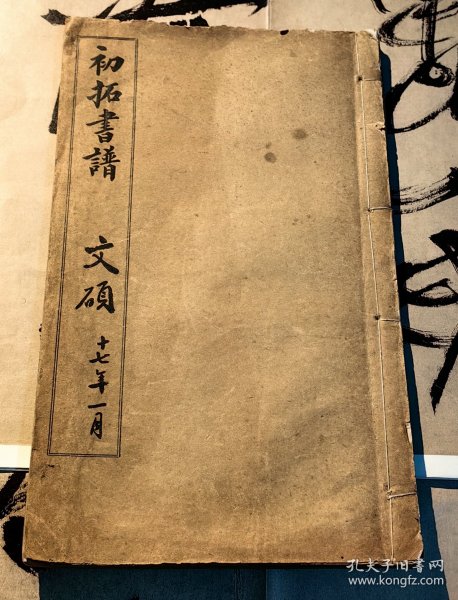 初拓書譜
文碩
十七年一月
孔夫子旧书网
www.kongfz.com